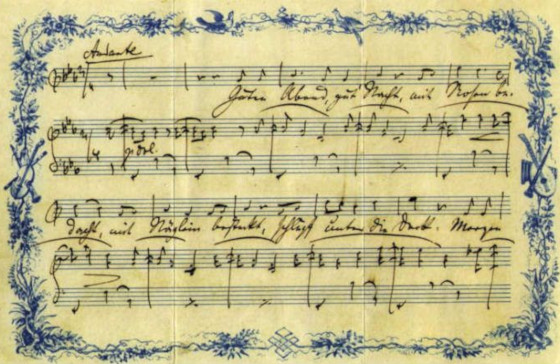 Andante
Guten Abend, gut Nacht, mit Rosen be-
p dol.
dacht, mit Näglein besteckt, schlupf unter die Deck. Morgen